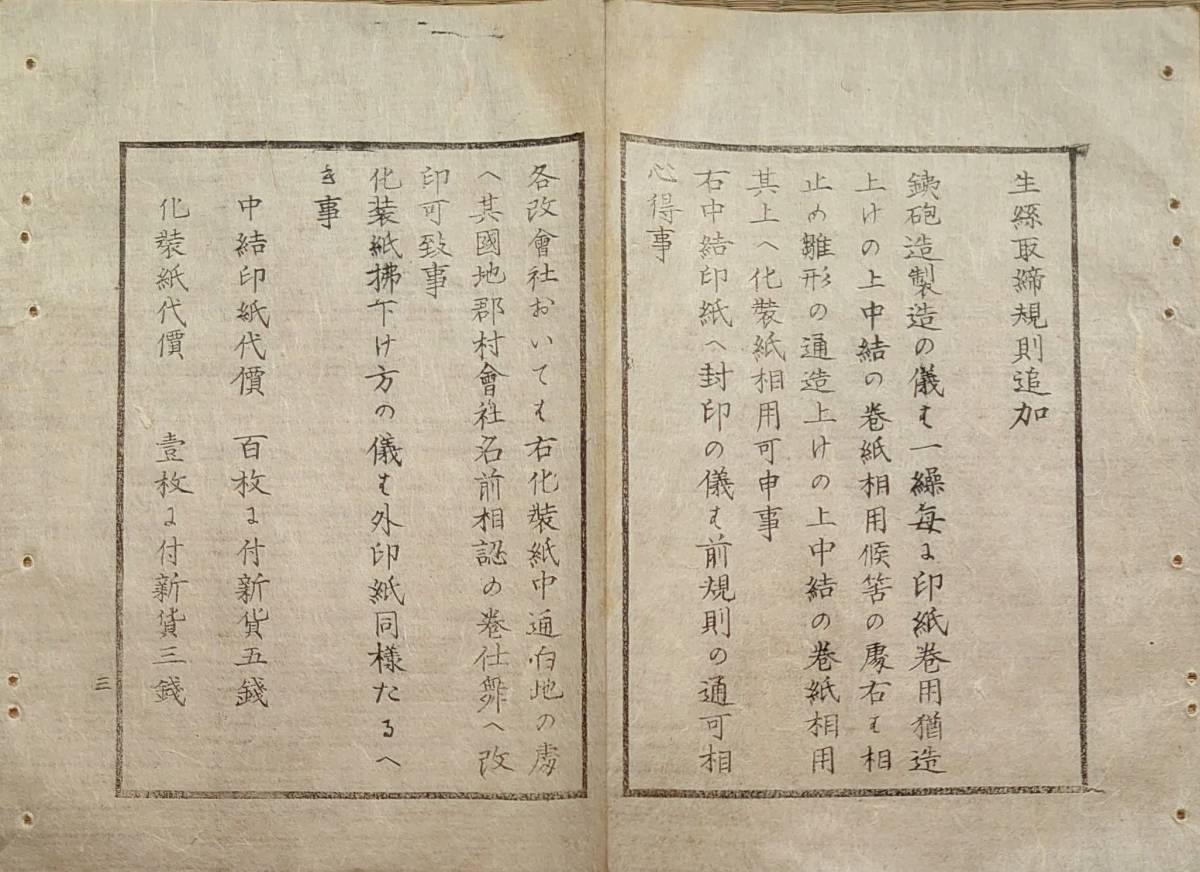 生絲取締規則追加
銕砲造製造の儀は一繰毎に印紙卷用猶造
上けの上中結の卷紙相用候筈の處右は相
止め雛形の通造上けの上中結の卷紙相用
其上へ化裝紙相用可申事
右中結印紙へ封印の儀は前規則の通可相
心得事
各改會社おいては右化裝紙中通白地の處
へ其國地郡村會社名前相認め卷仕舞へ改
印可致事
化裝紙拂下け方の儀は外印紙同様たるへ
き事
中結印紙代價　百枚に付新貨五錢
化裝紙代價　壹枚に付新貨三錢
三